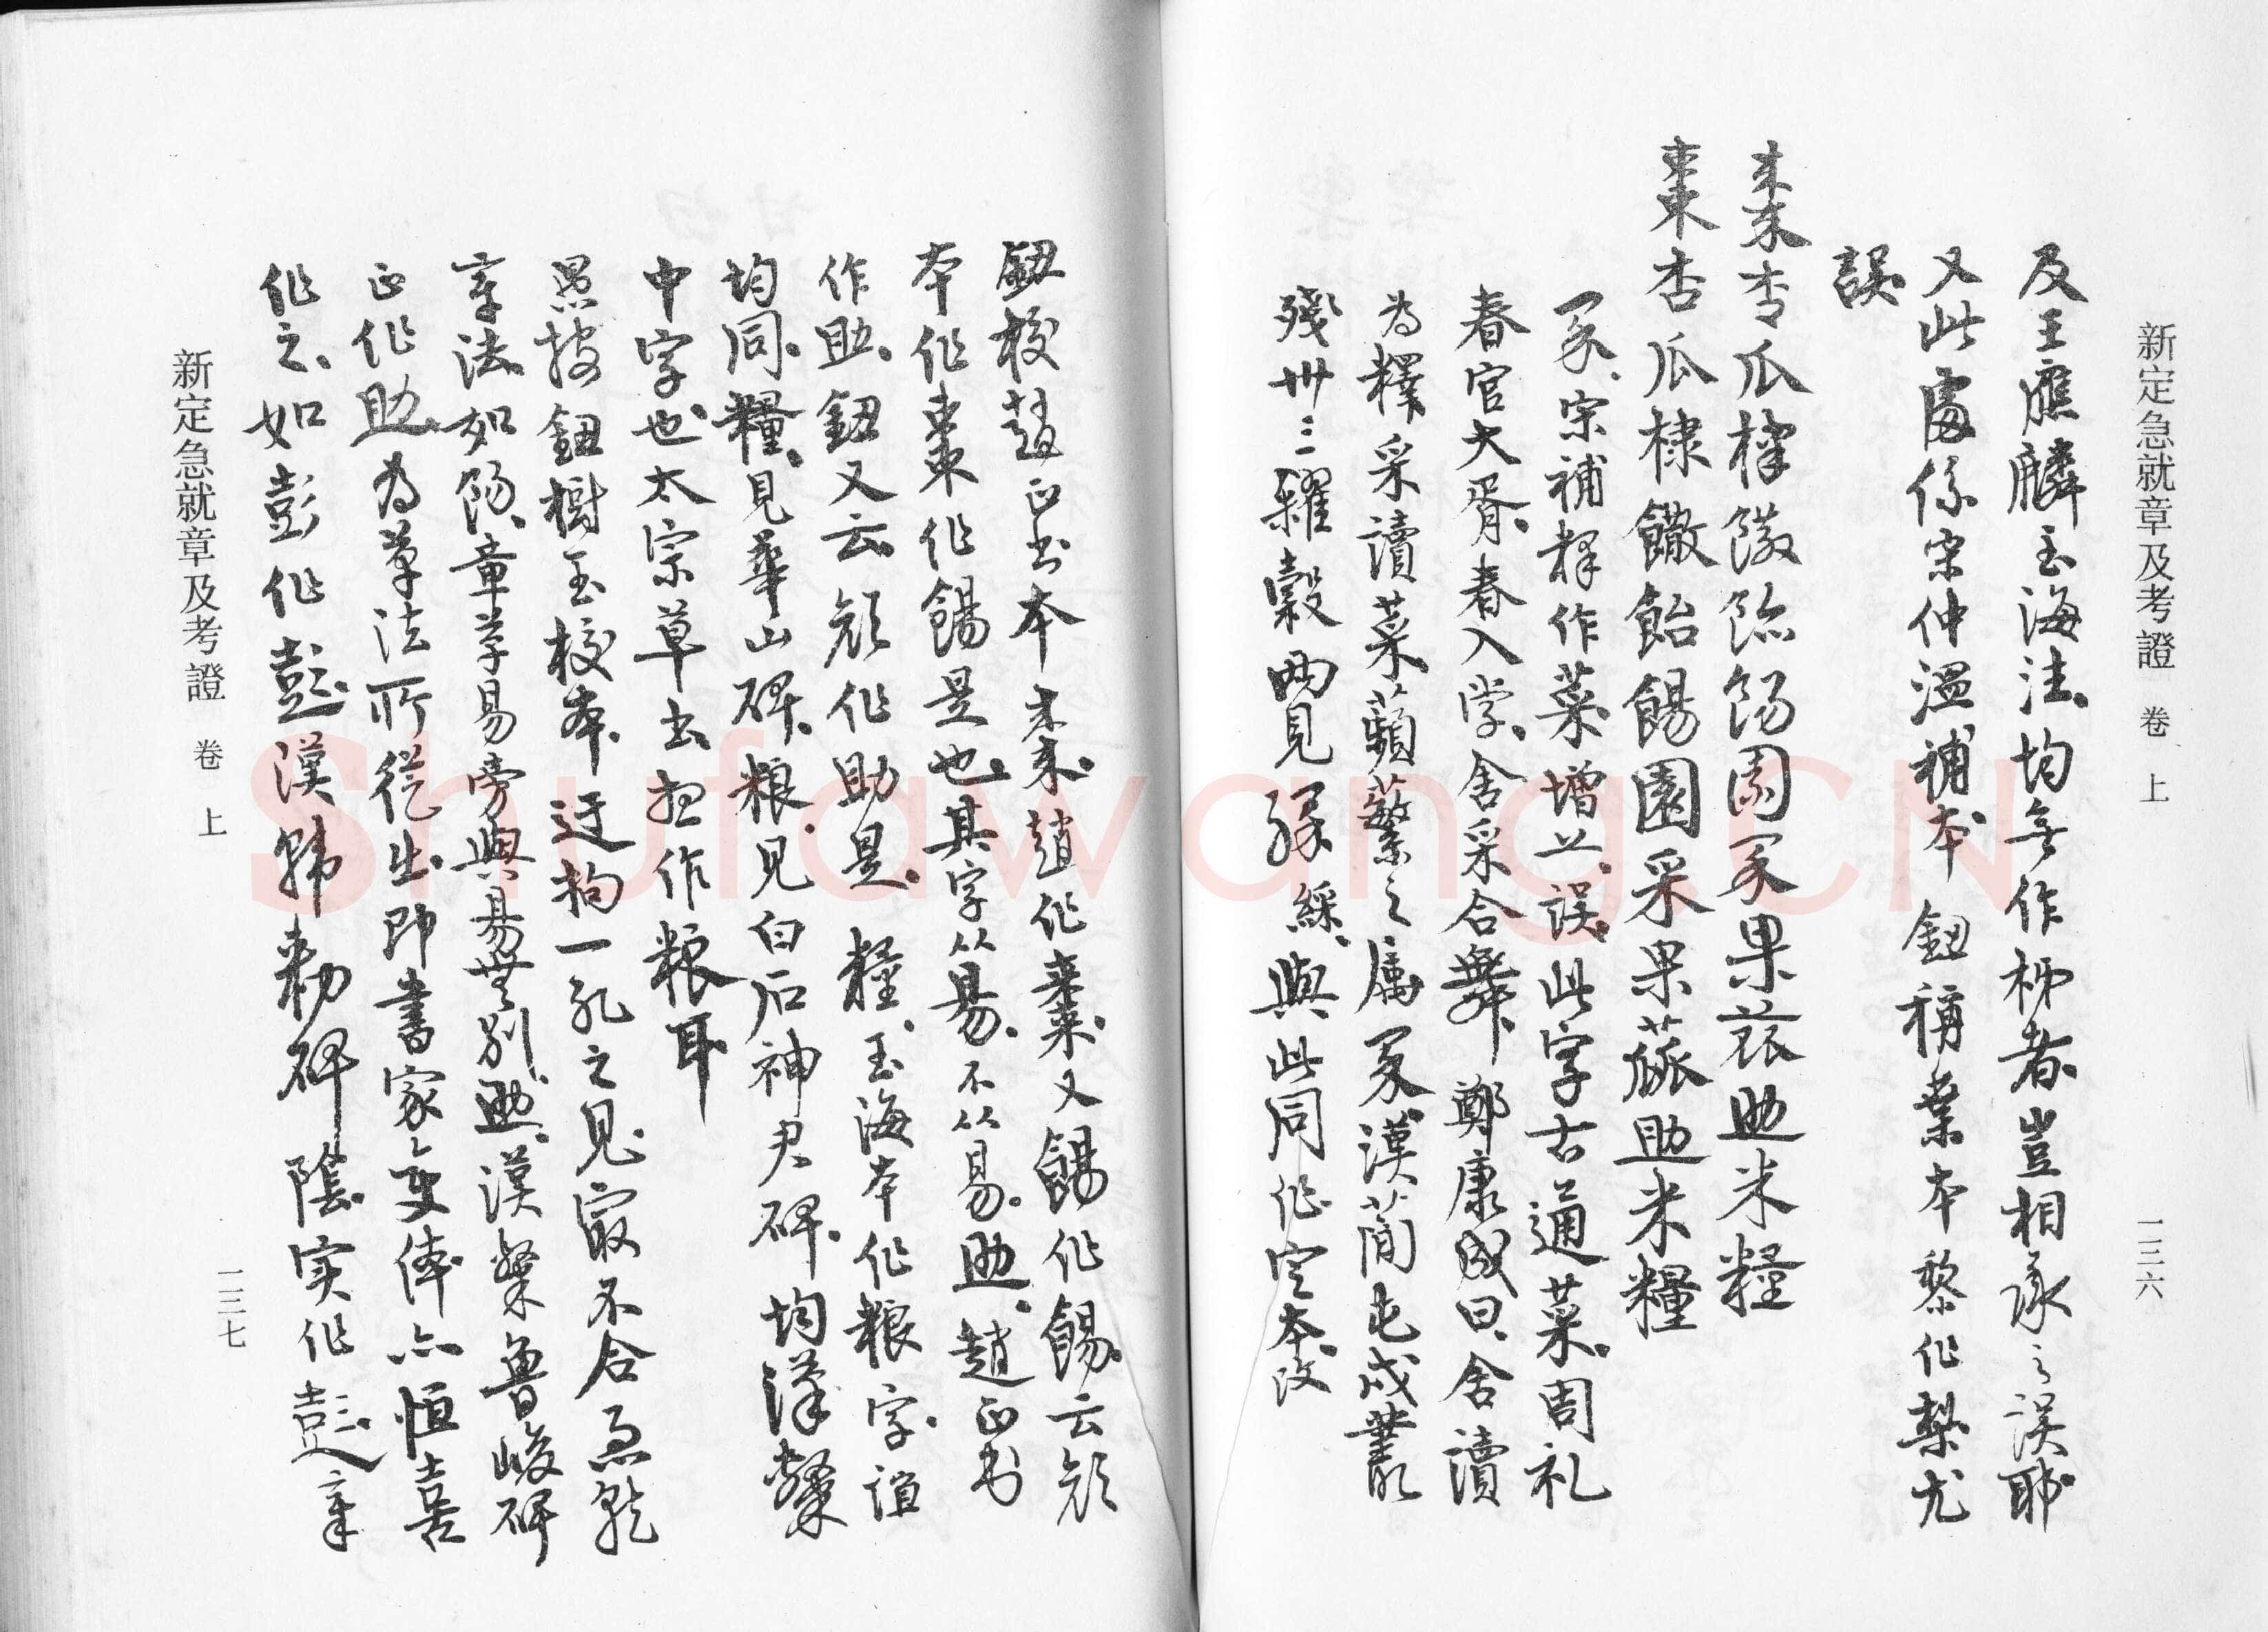 新定急就章及考證 卷 上 一三六
及王應麟玉海注均無作柹者豈相承之误耶
又此處係宋仲温補本 鈕稱葉本黎作梨尤
誤
棗杏瓜棣饊飴餳園采果蓏助米糧
棗杏瓜棣饊飴餳園采果蓏助米糧
采宋補释作菜增艹误此字古通菜周礼
春官大胥春入学舍采合舞鄭康成曰舍讀
为釋采讀菜蘋蘩之属采漢简屯戍叢
殘卅三糴穀两見綵與此同作定本改
鈕校趙正书本棗趙作棗又餳作餳云颜
本作棗作餳是也其字从昜不从易助趙正书
作助鈕又云颜作助是糧玉海本作粮字誼
均同糧見華山碑粮見白石神君碑均漢隸
中字也太宗草书担作粮耳
愚按鈕樹玉校本迂拘一孔之見寂不合急就
章法如餳章草易旁與昜無别助漢隸魯峻碑
正作助为草法所從出即書家变体亦恒喜
作之如彭作彭漢韩勅碑陰实作彭章
新定急就章及考證 卷 上 一三七
Shufawang.CN